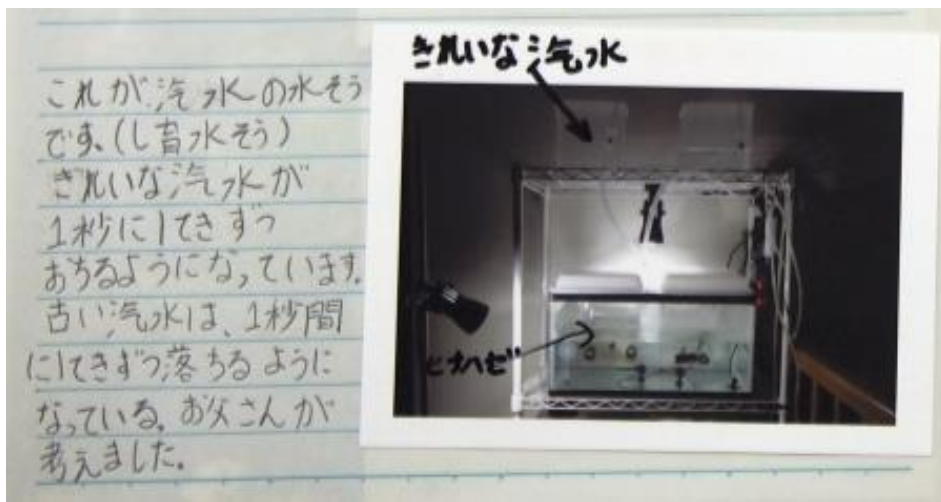 これが汽水の水そう
です。(し育水そう)
きれいな汽水が
1秒に1てきずつ
おちるようになっています。
古い汽水は、1秒間
に1てきずつ落ちるように
なっている。お父さんが
考えました。
きれいな汽水
ヒナハゼ